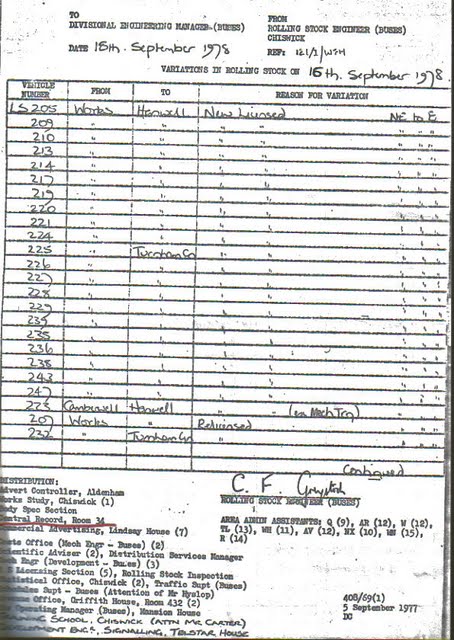 TO
DIVISIONAL ENGINEERING MANAGER (BUSES)
FROM
ROLLING STOCK ENGINEER (BUSES)
CHISWICK
DATE 15th. September 1978
REF: 121/1/WSH
VARIATIONS IN ROLLING STOCK ON 16th. September 1978
VEHICLE NUMBER FROM TO REASON FOR VARIATION
LS 205 Works Hanwell New Licensed NE to E
209 " " " " " " "
210 " " " " " " "
213 " " " " " " "
214 " " " " " " "
217 " " " " " " "
219 " " " " " " "
220 " " " " " " "
221 " " " " " " "
224 " " " " " " "
225 " Turnham Gn " " " " "
226 " " " " " " "
227 " " " " " " "
228 " " " " " " "
229 " " " " " " "
" " " " " " "
235 " " " " " " "
236 " " " " " " "
238 " " " " " " "
243 " " " " " " "
247 " " " " " " "
273 Camberwell Hanwell " " (ex Mech Trg) "
207 Works " Relicensed
232 " Turnham Gn "
Continued
DISTRIBUTION:
Advert Controller, Aldenham
Works Study, Chiswick (1)
Body Spec Section
Central Record, Room 34
Commercial Advertising, Lindsay House (7)
Costs Office (Mech Engr - Buses) (2)
Scientific Adviser (2), Distribution Services Manager
Mech Engr (Development - Buses) (3)
Licensing Section (5), Rolling Stock Inspection
Statistical Office, Chiswick (2), Traffic Supt (Buses)
Schedules Supt - Buses (Attention of Mr Hyslop)
Office, Griffith House, Room 432 (2)
Operating Manager (Buses), Mansion House
TRAINING SCHOOL, CHISWICK (ATTN MR CARTER)
DEVELOPMENT ENGR, SIGNALLING, TELSTAR HOUSE
C. F.
ROLLING STOCK ENGINEER (BUSES)
AREA ADMIN ASSISTANTS: Q (9), AR (12), W (12),
TL (13), WH (11), AV (12), NX (10), WN (15),
R (14)
408/69(1)
5 September 1977
DC